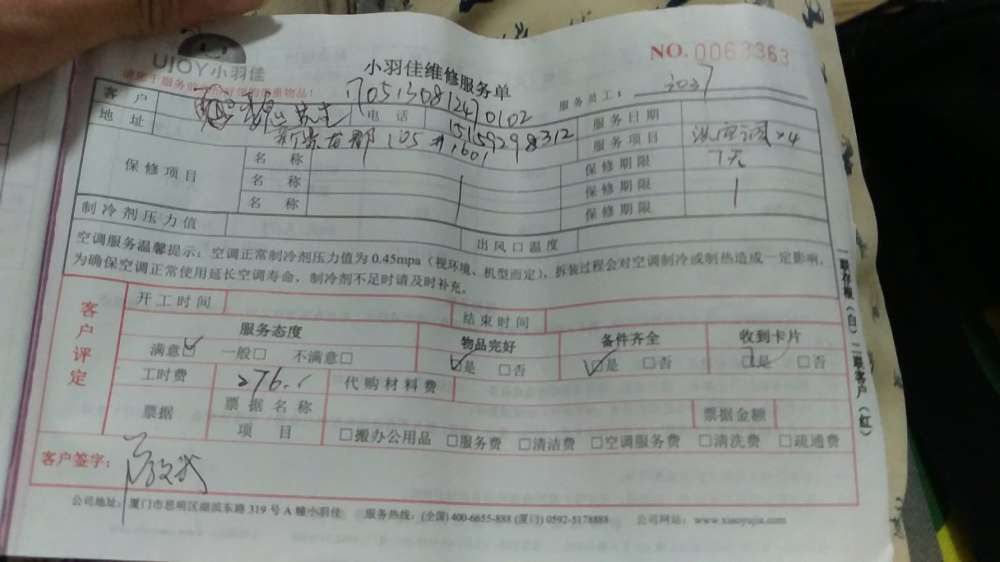 UJOY小羽佳
小羽佳维修服务单
NO.0063363
服务员工：3037
客户
705130812470102
电话
15159298312
服务日期
地址
105#1601
服务项目
洗空调×4
保修项目
名称
保修期限
7天
名称
保修期限
名称
保修期限
制冷剂压力值
出风口温度
空调服务温馨提示：空调正常制冷剂压力值为0.45mpa（视环境、机型而定），拆装过程会对空调制冷或制热造成一定影响，
为确保空调正常使用延长空调寿命，制冷剂不足时请及时补充。
客户评定
开工时间
结束时间
服务态度
物品完好
备件齐全
收到卡片
满意☑ 一般□ 不满意□
☑是 □否
☑是 □否
☑是 □否
工时费
276.
代购材料费
票据
票据名称
票据金额
项目
□搬办公用品 □服务费 □清洁费 □空调服务费 □清洗费 □疏通费
客户签字：
公司地址：厦门市思明区湖滨东路319号A幢小羽佳 服务热线：(全国) 400-6655-888 (厦门) 0592-5178888 公司网站：www.xiaoyujia.com
一联存根（白）二联客户（红）